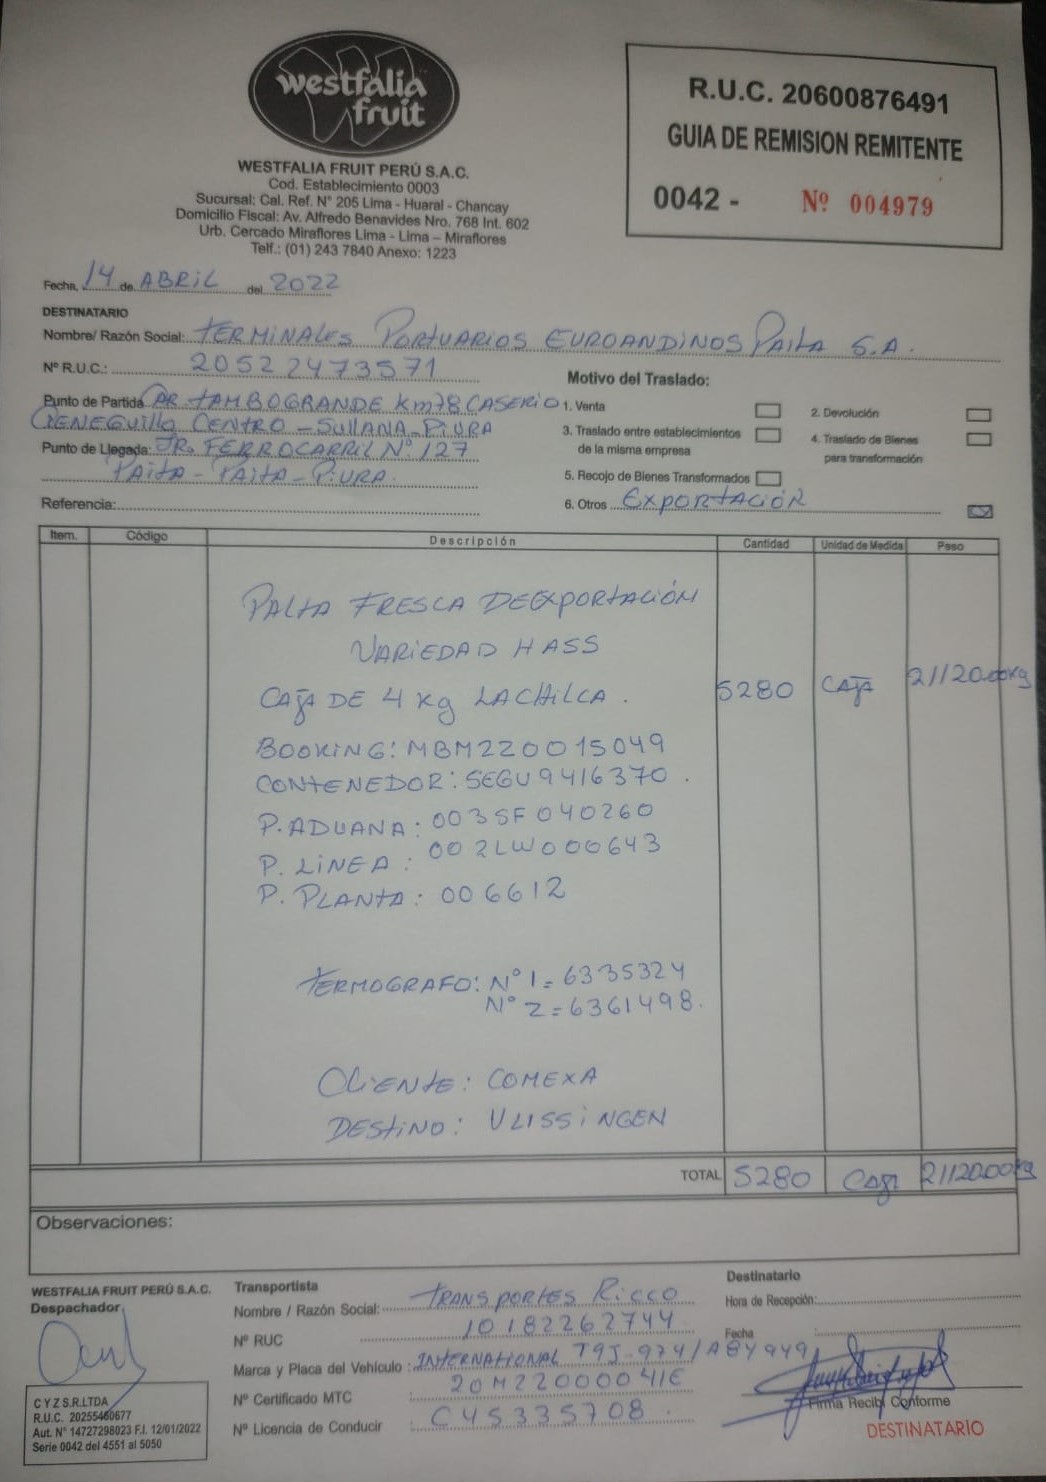 westfalia
fruit
WESTFALIA FRUIT PERÚ S.A.C.
Cod. Establecimiento 0003
Sucursal: Cal. Ref. N° 205 Lima - Huaral - Chancay
Domicilio Fiscal: Av. Alfredo Benavides Nro. 768 Int. 602
Urb. Cercado Miraflores Lima - Lima – Miraflores
Telf.: (01) 243 7840 Anexo: 1223
R.U.C. 20600876491
GUIA DE REMISION REMITENTE
0042 - Nº 004979
Fecha, 14 de ABRIL del 2022
DESTINATARIO
Nombre/ Razón Social: TERMINALES PORTUARIOS EUROANDINOS PAITA S.A.
Nº R.U.C.: 20522473571
Punto de Partida CAR. TAMBOGRANDE Km78 CASERIO
CIENEGUILLO CENTRO - SULLANA - PIURA
Punto de Llegada: JR. FERROCARRIL Nº 127
PAITA - PAITA - PIURA.
Referencia:
Motivo del Traslado:
1. Venta
2. Devolución
3. Traslado entre establecimientos
de la misma empresa
4. Traslado de Bienes
para transformación
5. Recojo de Bienes Transformados
6. Otros EXPORTACIÓN
Item. Código Descripción Cantidad Unidad de Medida Peso
PALTA FRESCA DE EXPORTACIÓN
VARIEDAD HASS
CAJA DE 4 Kg LA CHILCA. 5280 CAJA 21120.00Kg
BOOKING: MBM220015049
CONTENEDOR: SEGU9416370.
P. ADUANA: 003SF040260
P. LINEA: 002LW000643
P. PLANTA: 006612
TERMOGRAFO: Nº 1 = 6335324
Nº 2 = 6361498.
CLIENTE: COMEXA
DESTINO: VLISSINGEN
TOTAL 5280 Caja 21120.00Kg
Observaciones:
WESTFALIA FRUIT PERÚ S.A.C.
Despachador
C Y Z S.R.LTDA
R.U.C. 20255460677
Aut. N° 14727298023 F.I. 12/01/2022
Serie 0042 del 4551 al 5050
Transportista
Nombre / Razón Social: TRANSPORTES RICCO
Nº RUC 10182262744
Marca y Placa del Vehículo: INTERNATIONAL T9J-974/A8Y949
Nº Certificado MTC 20M22000041E
Nº Licencia de Conducir C45335708
Destinatario
Hora de Recepción:
Fecha
Firma Recibi Conforme
DESTINATARIO